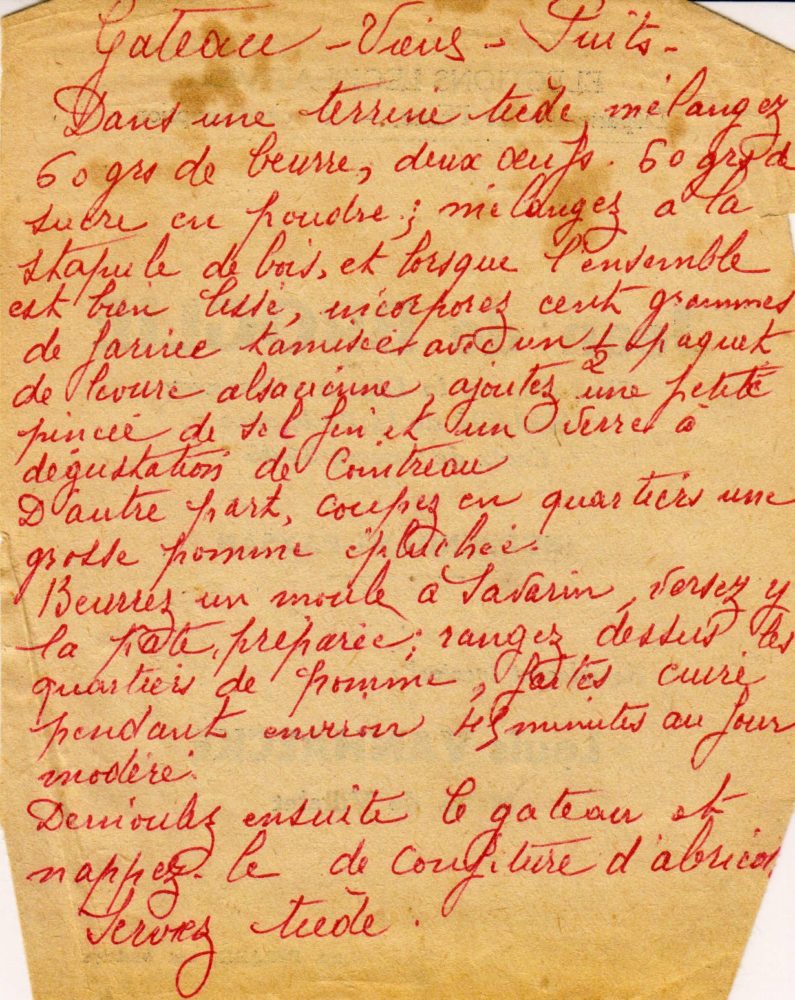 Gateau - Vieux - Puits -
Dans une terrine tiède, mélangez
60 grs de beurre, deux œufs. 60 grs de
sucre en poudre ; mélangez a la
spatule de bois, et lorsque l'ensemble
est bien lissé, incorporez cent grammes
de farine tamisée avec un 1/2 paquet
de levure alsacienne, ajoutez une petite
pincée de sel fin et un verre à
dégustation de Cointreau
D'autre part, coupez en quartiers une
grosse pomme épluchée.
Beurrez un moule à Savarin, versez y
la pâte, préparée ; rangez dessus les
quartiers de pomme, faites cuire
pendant environ 45 minutes au four
modéré.
Demoulez ensuite le gateau et
nappez-le de confiture d'abricot
Servez tiède.